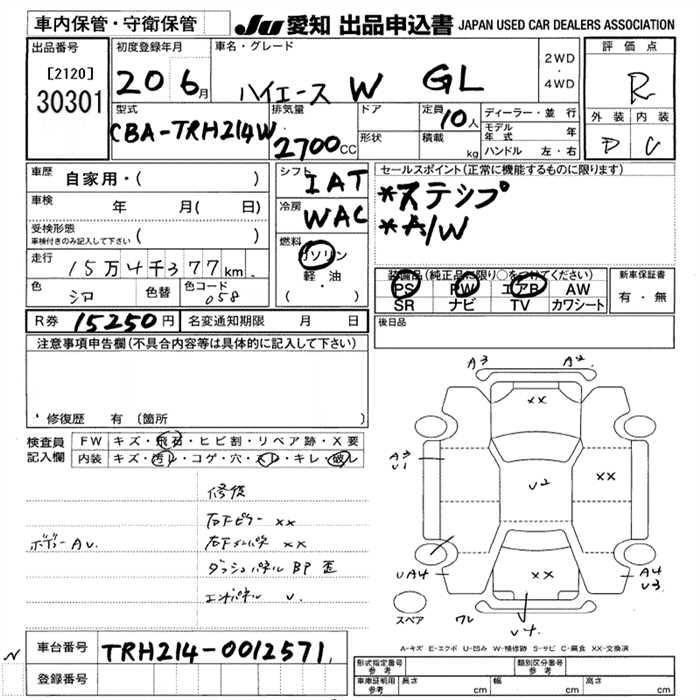 車内保管・守衛保管
JU 愛知 出品申込書 JAPAN USED CAR DEALERS ASSOCIATION
出品番号
[2120]
30301
初度登録年月
20 6月
車名・グレード
ハイエース W GL
2WD
・
4WD
評価点
R
外装 内装
D C
型式
CBA-TRH214W
排気量
2700CC
ドア
形状
定員 10人
積載 kg
ディーラー・並行
モデル年式 年
ハンドル 左・右
車歴 自家用・( )
車検 年 月( 日)
受検形態
車検付きのみ記入して下さい ( )
走行 15万4千377km
色 シロ 色替 色コード 058
シフト IAT
冷房 WAC
燃料 ガソリン
軽・油
( )
セールスポイント(正常に機能するものに限ります)
*ステシプ
*A/W
装備品(純正品に限り○をつけてください)
PS PW エアB AW
SR ナビ TV カワシート
新車保証書
有・無
R券 15250円 名変通知期限 月 日
後日品
注意事項申告欄(不具合内容等は具体的に記入して下さい)
修復歴 有 (箇所 )
検査員記入欄
FW キズ・飛石・ヒビ割・リペア跡・X要
内装 キズ・汚レ・コゲ・穴・スレ・キレ・破レ
修復
右Fピラー XX
ボディーAU 右Fインパネ XX
ダッシュパネル BP 歪
エンドパネル U
A3 A2
XX
A3
U1
U2
XX
UA4
XX
A4
U3
スペア
ワレ
U4
A-キズ E-エクボ U-凹み W-補修跡 S-サビ C-腐食 XX-交換済
N
車台番号 TRH214-0012571
登録番号
形式指定番号
参考
類別区分番号
参考
車庫証明用
参考
長さ cm 幅 cm 高さ cm